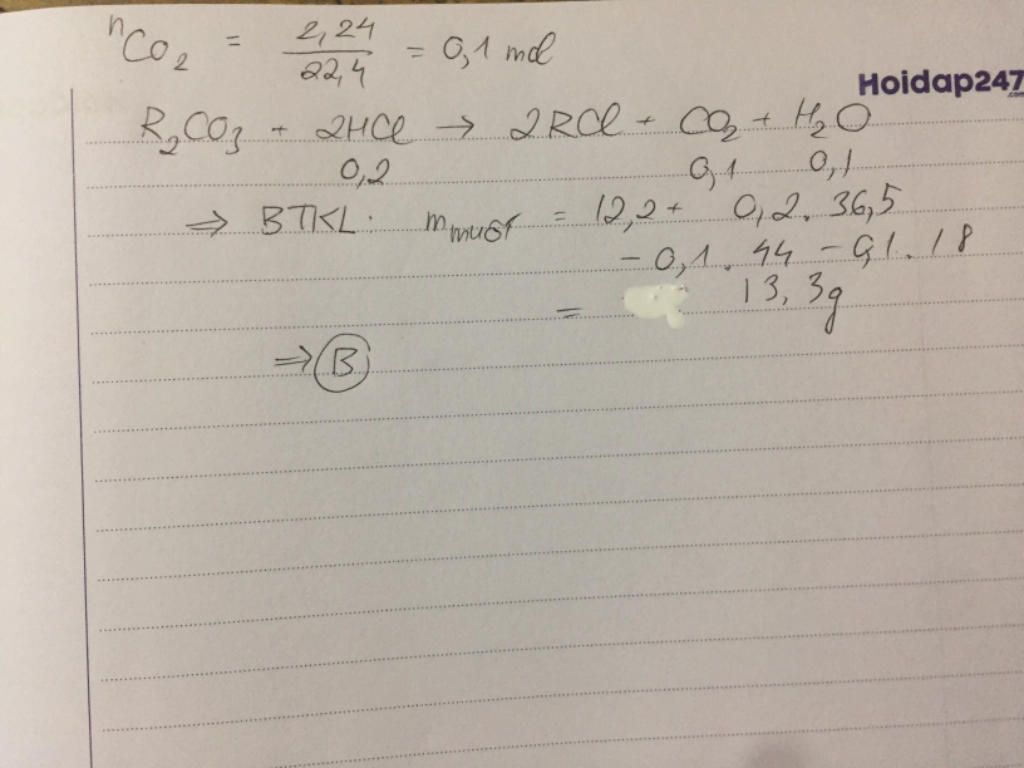 nCO₂ = 2,24/22,4 = 0,1 mol
Hoidap247.com
R₂CO₃ + 2HCl → 2RCl + CO₂ + H₂O
0,2 0,1 0,1
⇒ BTKL: m muối = 12,2 + 0,2 . 36,5
- 0,1 . 44 - 0,1 . 18
= 13,3g
⇒ B